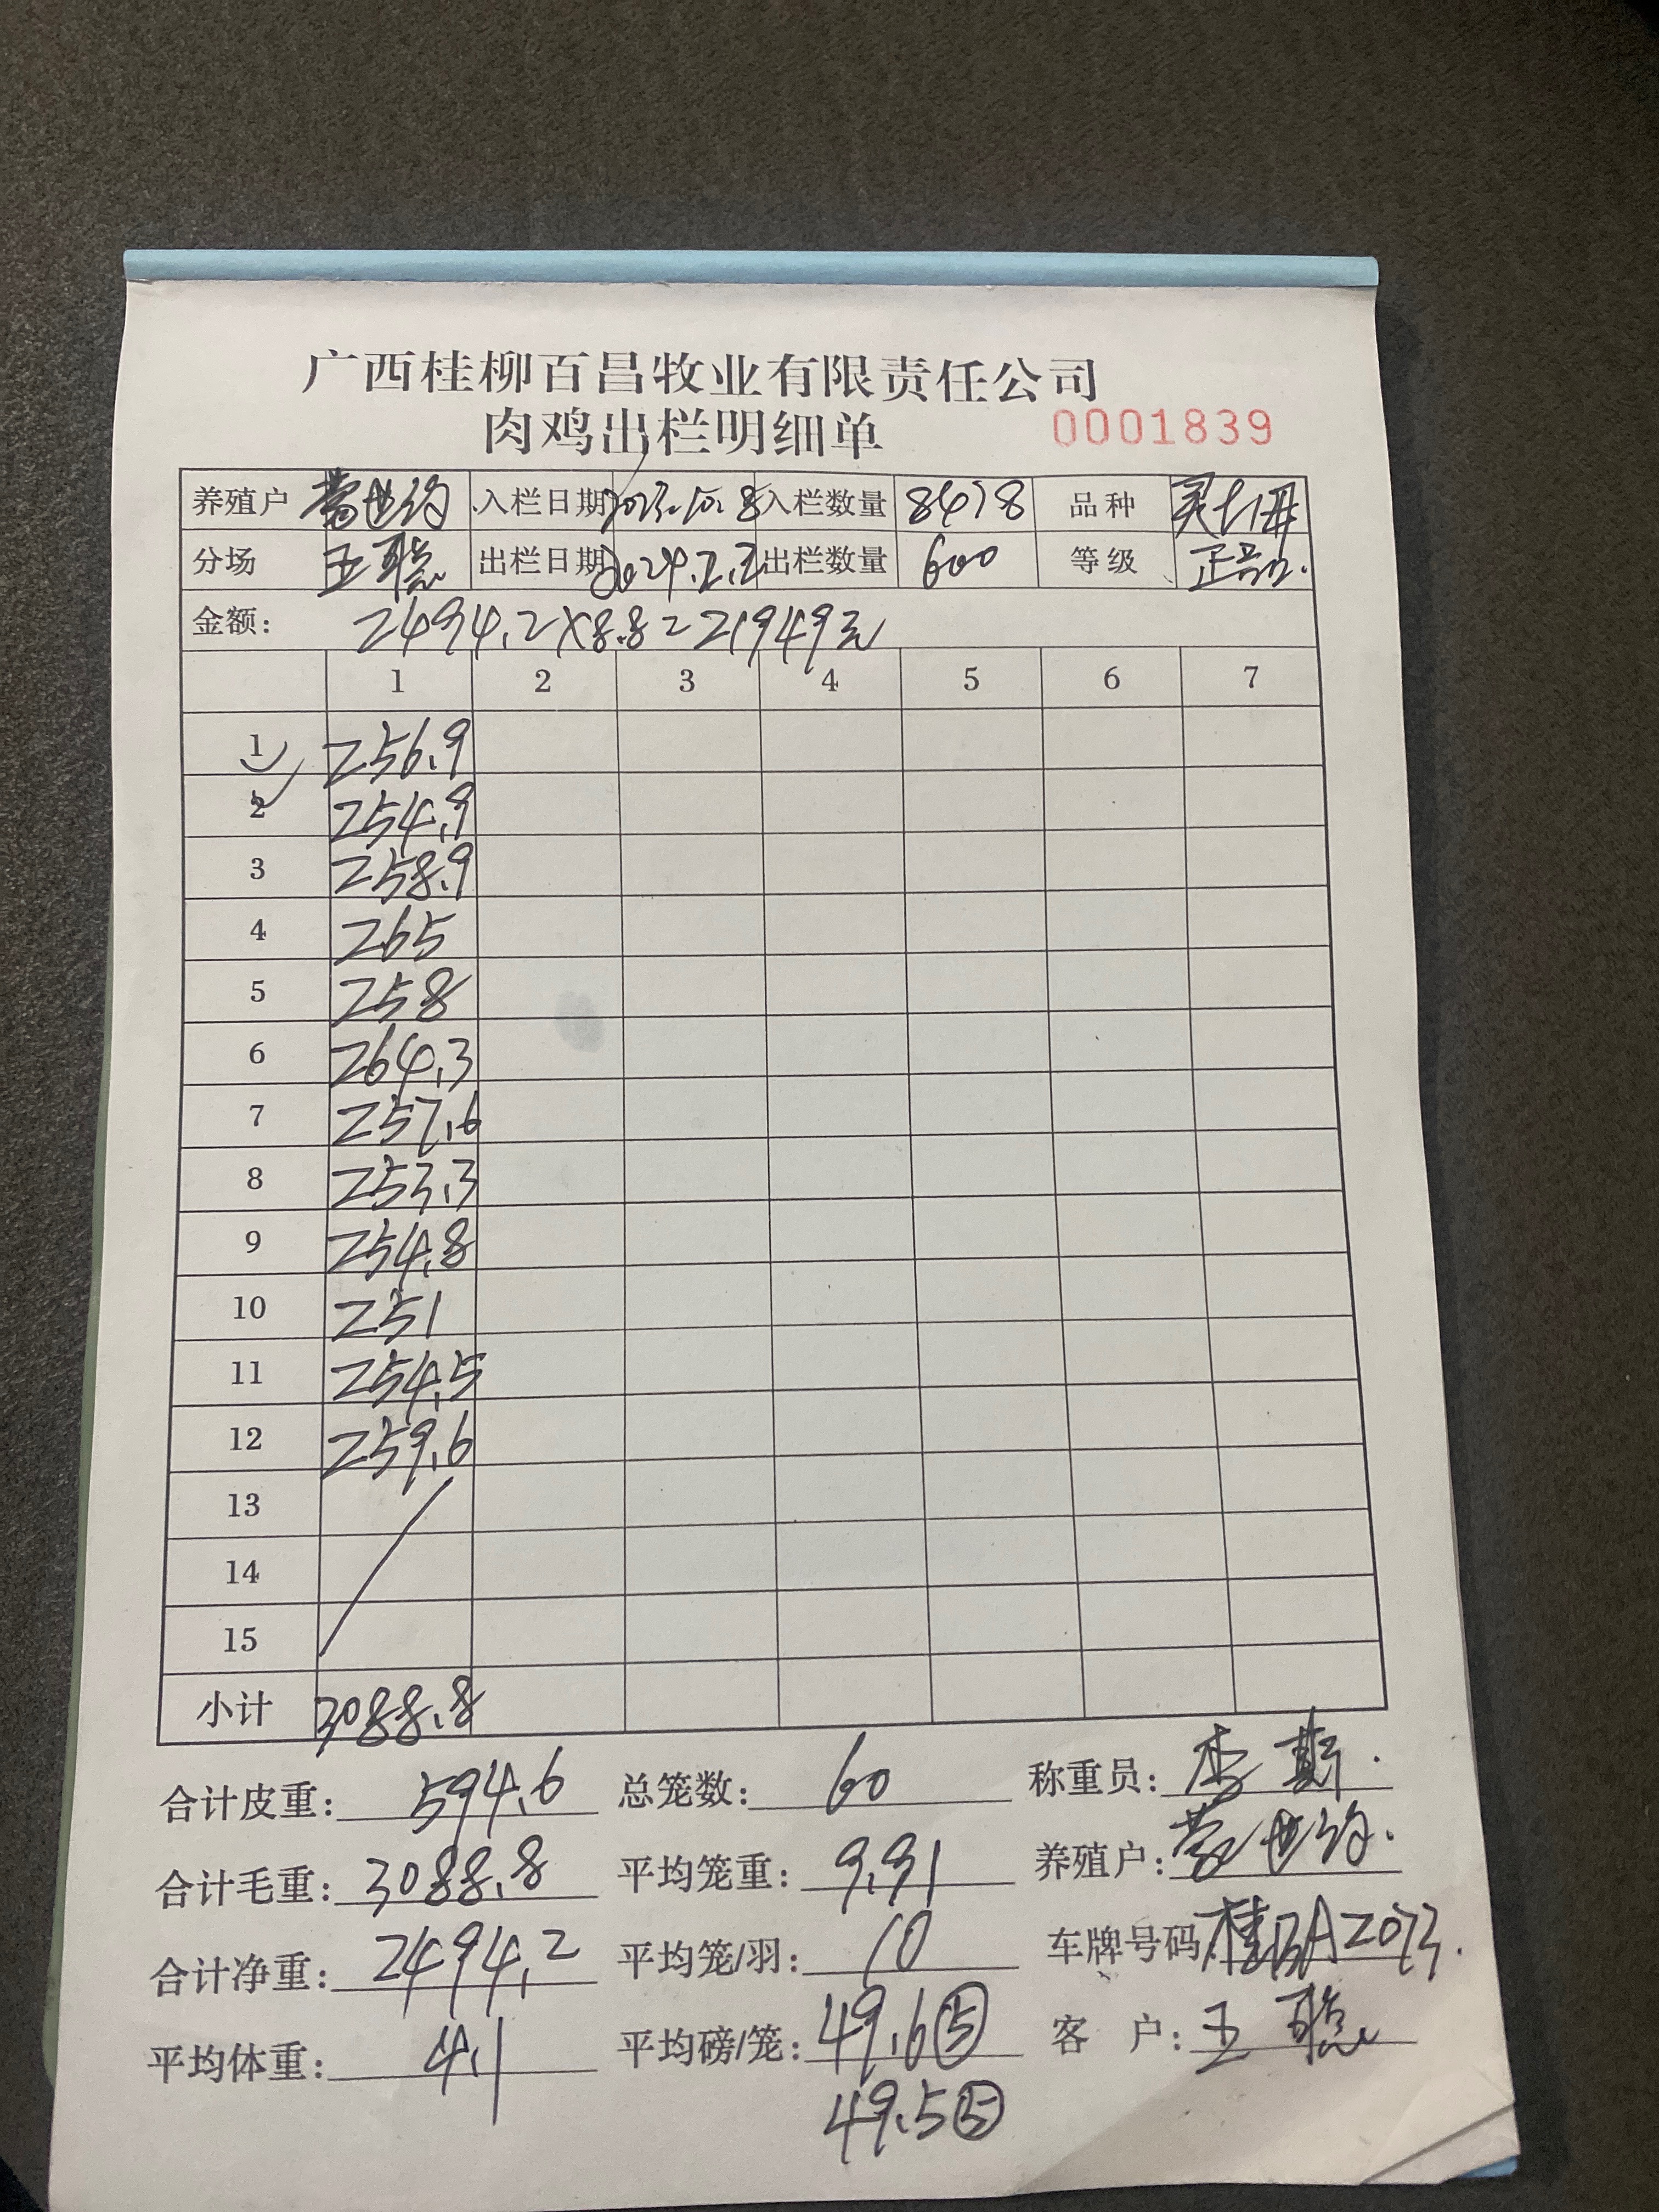 广西桂柳百昌牧业有限责任公司
肉鸡出栏明细单 0001839
养殖户 世 入栏日期 2023.10.8 入栏数量 8478 品种
分场 王聪 出栏日期 2024.2.2 出栏数量 600 等级 正品.
金额: 2494.2×8.8=21949元
1 2 3 4 5 6 7
1 256.9
2 254.9
3 258.9
4 265
5 258
6 264.3
7 257.6
8 253.3
9 254.8
10 251
11 254.5
12 259.6
13
14
15
小计 3088.8
合计皮重: 594.6 总笼数: 60 称重员: 李
合计毛重: 3088.8 平均笼重: 9.91 养殖户: 世
合计净重: 2494.2 平均笼/羽: 10 车牌号码: 桂 A2073.
平均体重: 4.1 平均磅/笼: 49.6⑤ 客 户: 王聪
49.5⑤